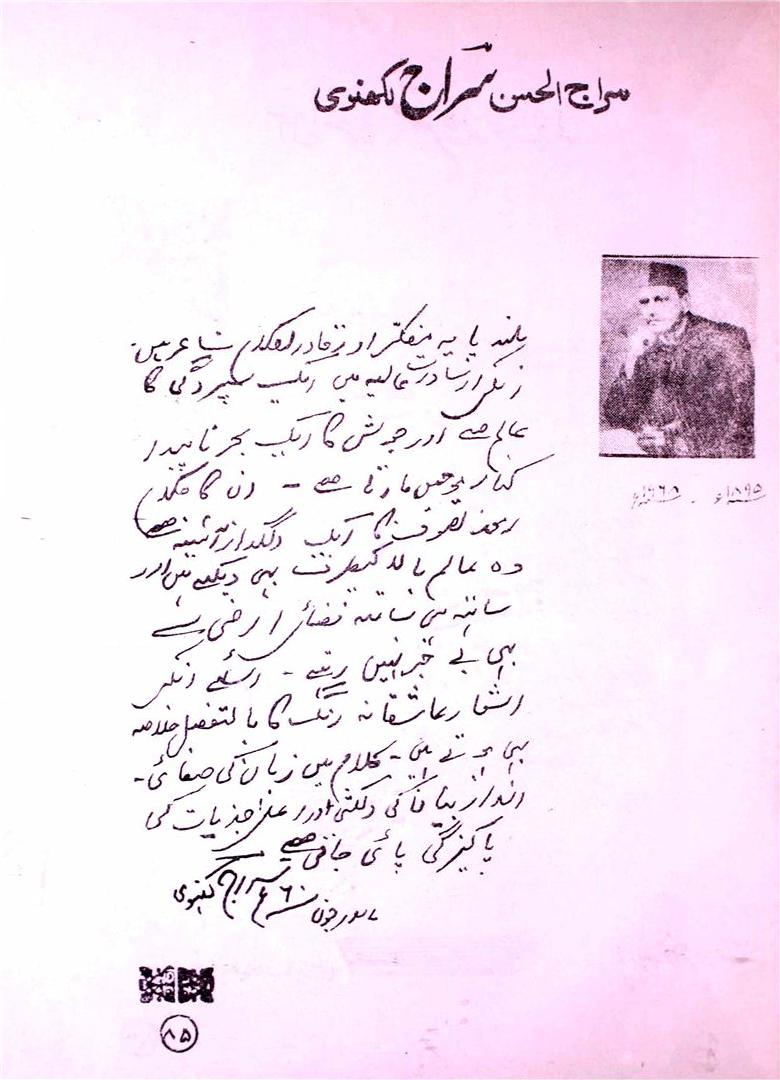 سراج الحسن سراج لکھنوی
۱۸۹۵ء - ۱۹۶۸ء
بلند پایہ مفکر اور قادر الکلام شاعر ہیں
انکے ارشادات عالیہ میں ایک سپردگی کا
عالم ہے اور جوش کا ایک بحر ناپیدا
کنار موجیں مارتا ہے - ان کا کلام
رموز تصوف کا ایک دلگداز آئینہ ہے
وہ عالم بالا کیطرف بھی دیکھتے ہیں اور
ساتھ ہی ساتھ فضائے ارضی سے
بھی بے خبر نہیں رہتے - اسلئے انکے
اشعار عاشقانہ رنگ کا بالتفصیل خلاصہ
بھی ہوتے ہیں - کلام میں زبان کی صفائی -
انداز بیان کی دلکشی اور اعلیٰ جذبات کی
پاکیزگی پائی جاتی ہے
سراج لکھنوی
جون ۶۰ء
۸۵